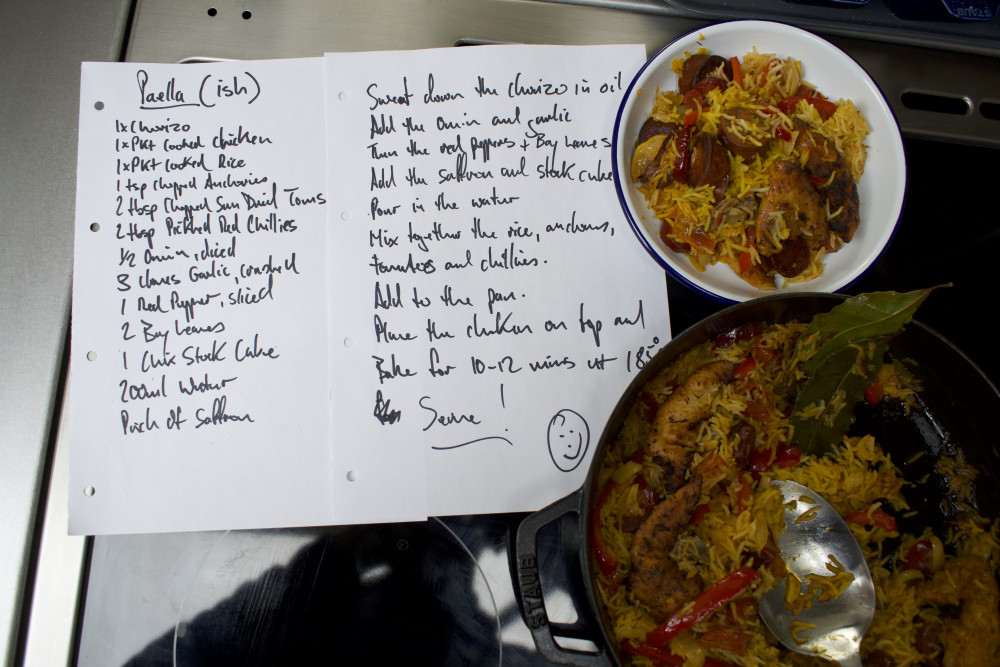 Paella (ish)
1x Chorizo
1x Pkt Cooked Chicken
1x Pkt Cooked Rice
1 tsp Chopped Anchovies
2 tbsp Chopped Sun Dried Toms
2 tbsp Pickled Red Chillies
1/2 Onion, sliced
3 Cloves Garlic, crushed
1 Red Pepper, sliced
2 Bay Leaves
1 Chix Stock Cube
200ml Water
Pinch of Saffron
Sweat down the Chorizo in oil
Add the onion and garlic
Then the red peppers + Bay Leaves
Add the saffron and stock cube
Pour in the water
Mix together the rice, anchovies,
tomatoes and chillies.
Add to the pan.
Place the chicken on top and
Bake for 10-12 mins at 185°
Serve!
STAUB
STAUB